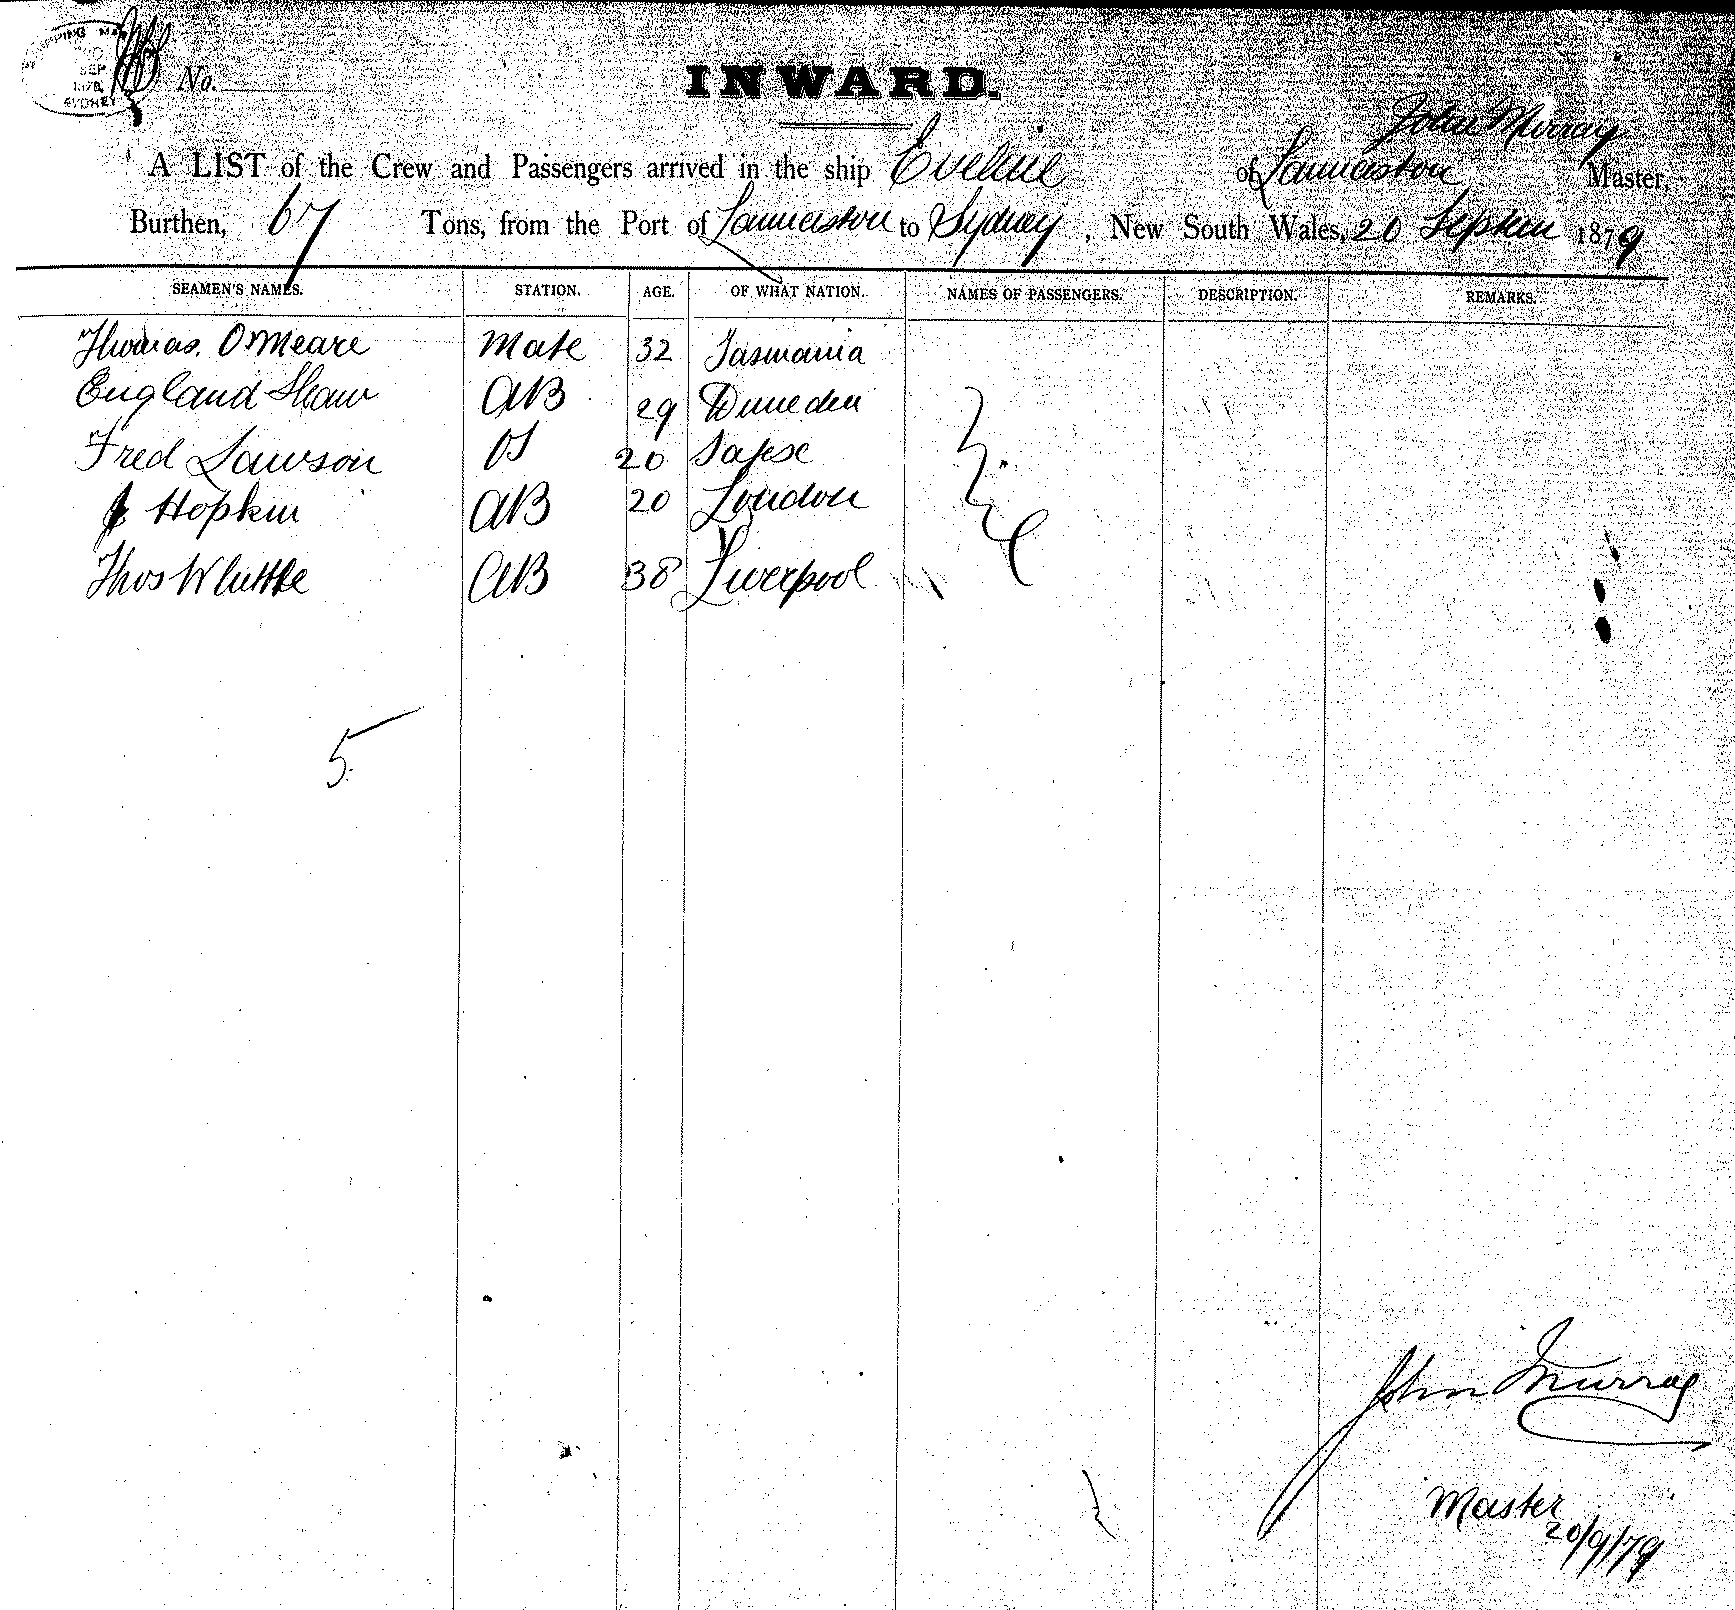 SHIPPING MA
SEP
SYDNEY
No.
INWARD.
John Murray
A LIST of the Crew and Passengers arrived in the ship Eveline of Launceston Master,
Burthen, 67 Tons, from the Port of Launceston to Sydney, New South Wales, 20 Septem 1879
SEAMEN'S NAMES. STATION. AGE. OF WHAT NATION. NAMES OF PASSENGERS. DESCRIPTION. REMARKS.
Thomas. O'Meare Mate 32 Tasmania
England Shaw AB 29 Duneden
Fred Lawson OS 20
Hopkin AB 20 London
Thos Whittle AB 38 Liverpool
5
John Murray
Master
20/9/79